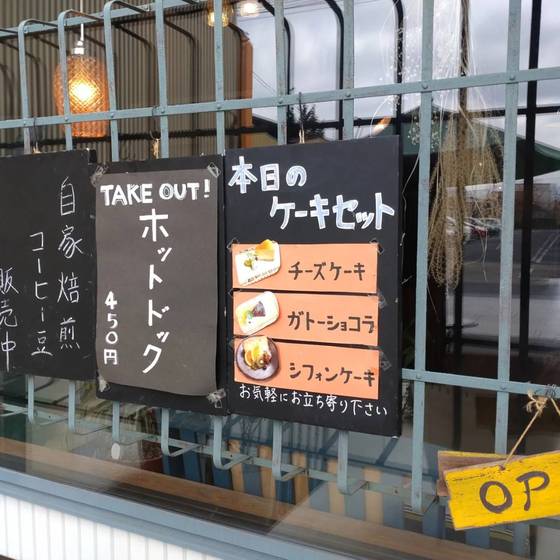 自家焙煎
コーヒー豆
販売中
TAKE OUT!
ホットドック
450円
本日の
ケーキセット
チーズケーキ
ガトーショコラ
シフォンケーキ
お気軽にお立ち寄り下さい
OP